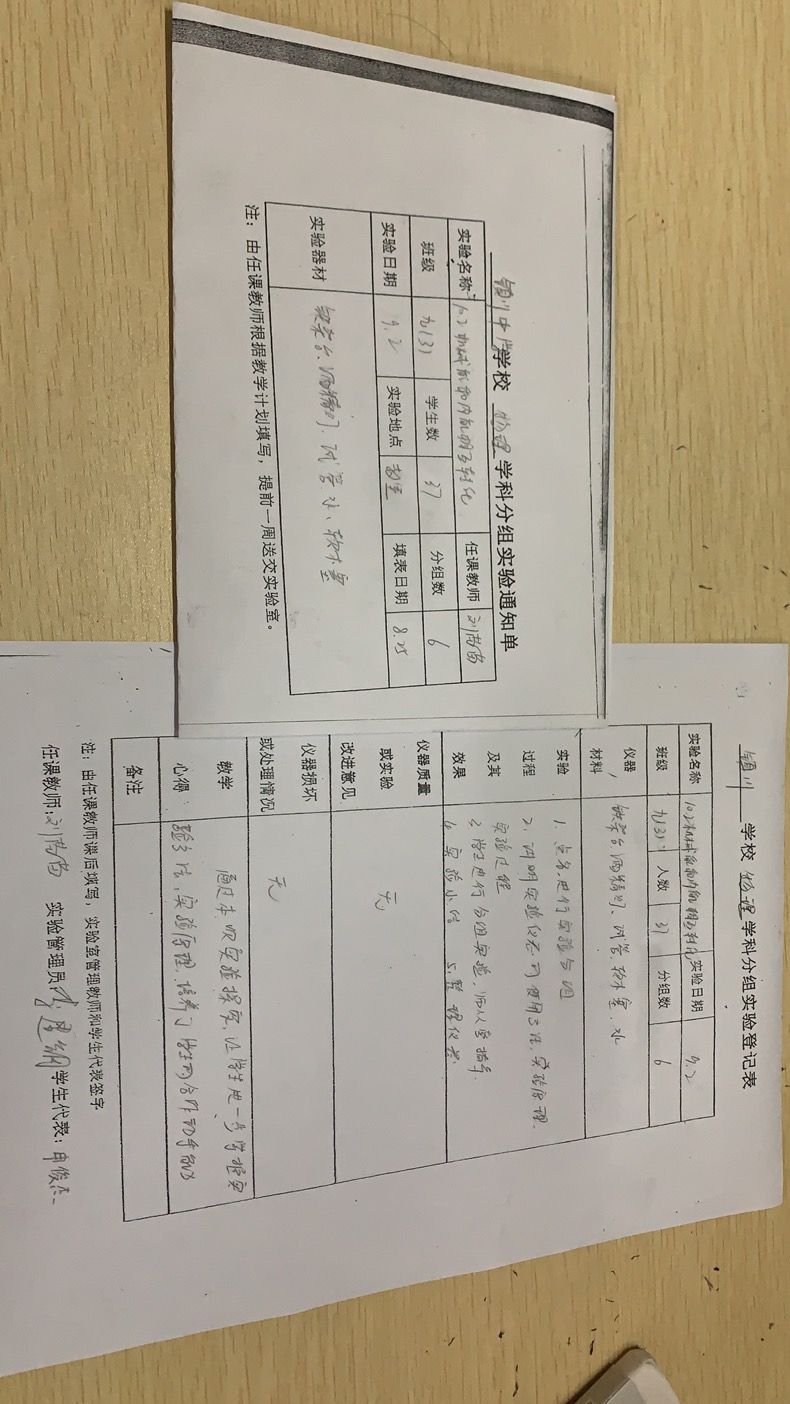 镇川中心学校 物理 学科分组实验通知单
实验名称 10.2机械能和内能的相互转化 任课教师
班级 九(3) 学生数 37 分组数 6
实验日期 9.2 实验地点 填表日期 8.25
实验器材 铁架台、酒精灯、试管、水、软木塞
注：由任课教师根据教学计划填写，提前一周送交实验室。
镇川 学校 物理 学科分组实验登记表
实验名称 10.2机械能和内能的相互转化 实验日期 9.2
班级 九(3) 人数 37 分组数 6
仪器材料 铁架台、酒精灯、试管、软木塞、水
实验过程及其效果 1、点名，进行实验分组
2、讲明实验仪器的使用方法，实验原理、
实验过程
3、学生进行分组实验，师从旁指导
4、实验小结 5、整理仪器.
仪器质量或实验改进意见 无
仪器损坏或处理情况 无
教学心得： 通过本次实验探究，让学生进一步掌握实
验方法，实验原理，培养了学生的合作动手能力
备注
注：由任课教师课后填写，实验室管理教师和学生代表签字
任课教师： 实验管理员： 学生代表：